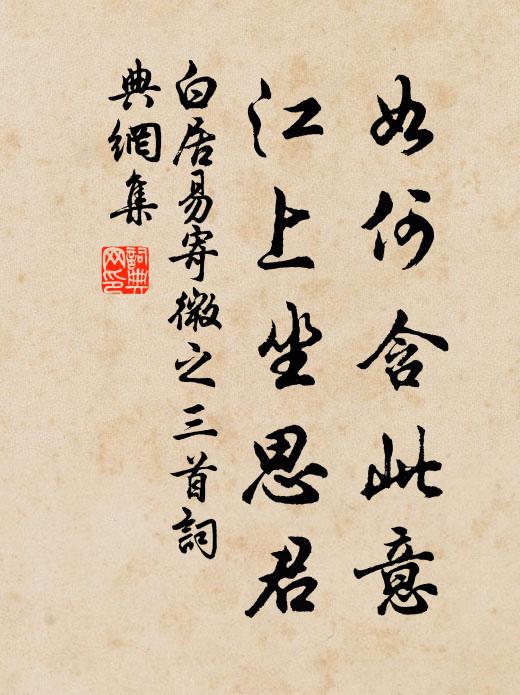 如何含此意
江上坐思君
白居易寄微之三首詞
典網集
詞典
網印